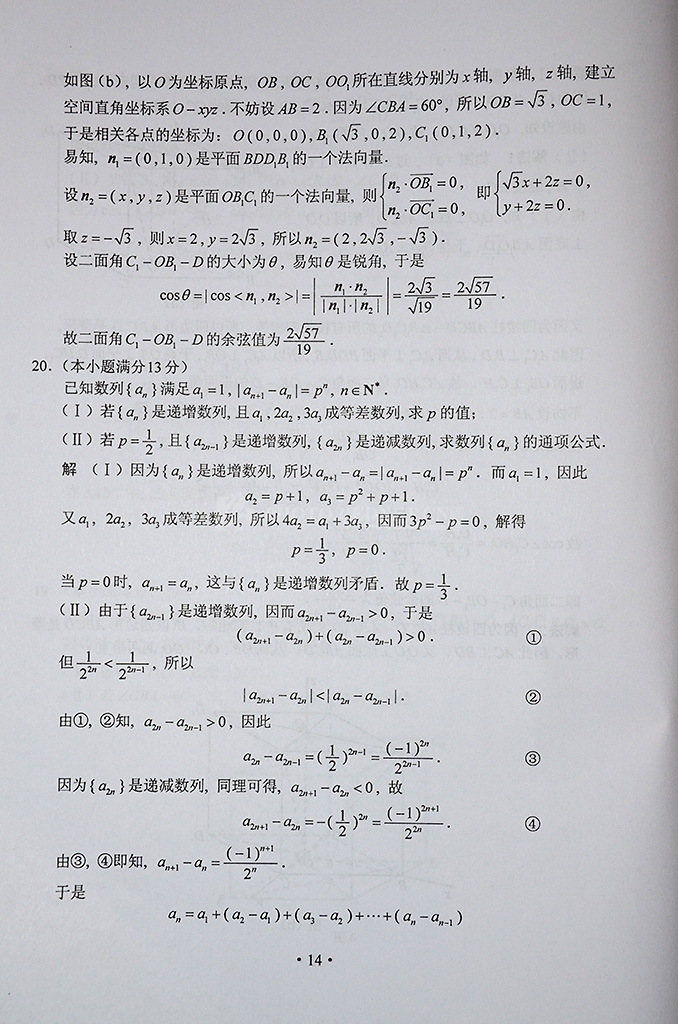 如图(b), 以O为坐标原点, OB, OC, OO₁所在直线分别为x轴, y轴, z轴, 建立
空间直角坐标系O-xyz. 不妨设AB=2. 因为∠CBA=60°, 所以OB=√3, OC=1,
于是相关各点的坐标为: O(0,0,0), B₁(√3,0,2), C₁(0,1,2).
易知, n₁=(0,1,0)是平面BDD₁B₁的一个法向量.
设n₂=(x,y,z)是平面OB₁C₁的一个法向量, 则{n₂·OB₁=0, n₂·OC₁=0, 即{√3x+2z=0, y+2z=0.
取z=-√3, 则x=2, y=2√3, 所以n₂=(2,2√3,-√3).
设二面角C₁-OB₁-D的大小为θ, 易知θ是锐角, 于是
cosθ=|cos<n₁,n₂>|=|n₁·n₂/(|n₁|·|n₂|)|=2√3/√19=2√57/19.
故二面角C₁-OB₁-D的余弦值为2√57/19.
20. (本小题满分13分)
已知数列{aₙ}满足a₁=1, |aₙ₊₁-aₙ|=pⁿ, n∈N*.
(Ⅰ)若{aₙ}是递增数列, 且a₁, 2a₂, 3a₃成等差数列, 求p的值;
(Ⅱ)若p=1/2, 且{a₂ₙ₋₁}是递增数列, {a₂ₙ}是递减数列, 求数列{aₙ}的通项公式.
解 (Ⅰ)因为{aₙ}是递增数列, 所以aₙ₊₁-aₙ=|aₙ₊₁-aₙ|=pⁿ. 而a₁=1, 因此
a₂=p+1, a₃=p²+p+1.
又a₁, 2a₂, 3a₃成等差数列, 所以4a₂=a₁+3a₃, 因而3p²-p=0, 解得
p=1/3, p=0.
当p=0时, aₙ₊₁=aₙ, 这与{aₙ}是递增数列矛盾. 故p=1/3.
(Ⅱ)由于{a₂ₙ₋₁}是递增数列, 因而a₂ₙ₊₁-a₂ₙ₋₁>0, 于是
(a₂ₙ₊₁-a₂ₙ)+(a₂ₙ-a₂ₙ₋₁)>0. ①
但1/2²ⁿ<1/2²ⁿ⁻¹, 所以
|a₂ₙ₊₁-a₂ₙ|<|a₂ₙ-a₂ₙ₋₁|. ②
由①, ②知, a₂ₙ-a₂ₙ₋₁>0, 因此
a₂ₙ-a₂ₙ₋₁=(1/2)²ⁿ⁻¹=(-1)²ⁿ/2²ⁿ⁻¹. ③
因为{a₂ₙ}是递减数列, 同理可得, a₂ₙ₊₁-a₂ₙ<0, 故
a₂ₙ₊₁-a₂ₙ=-(1/2)²ⁿ=(-1)²ⁿ⁺¹/2²ⁿ. ④
由③, ④即知, aₙ₊₁-aₙ=(-1)ⁿ⁺¹/2ⁿ.
于是
aₙ=a₁+(a₂-a₁)+(a₃-a₂)+⋯+(aₙ-aₙ₋₁)
·14·